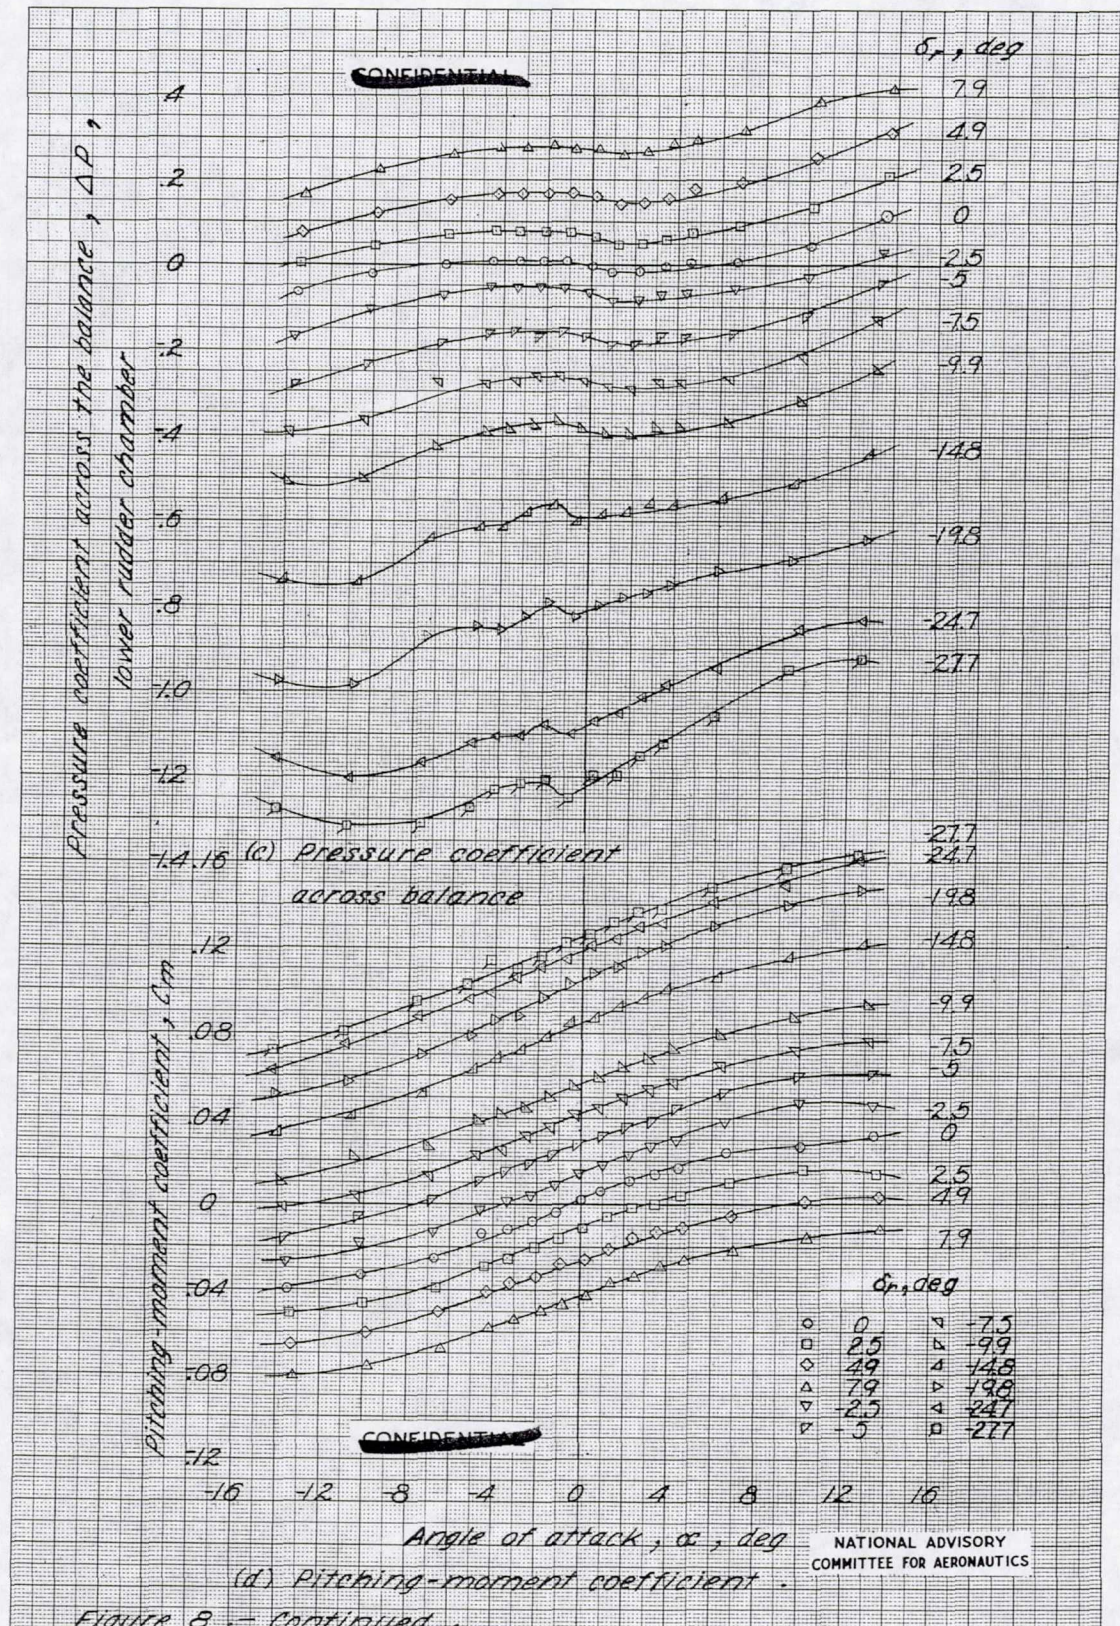 CONFIDENTIAL
δr, deg
7.9
4.9
2.5
0
-2.5
-5
-7.5
-9.9
-14.8
-19.8
-24.7
-27.7
.4
.2
0
-.2
-.4
-.6
-.8
-1.0
-1.2
-1.4
Pressure coefficient across the balance, ΔP,
lower rudder chamber
(c) Pressure coefficient
across balance
-27.7
-24.7
-19.8
-14.8
-9.9
-7.5
-5
-2.5
0
2.5
4.9
7.9
.16
.12
.08
.04
0
-.04
-.08
-.12
Pitching-moment coefficient, Cm
δr, deg
0 -7.5
2.5 -9.9
4.9 -14.8
7.9 -19.8
-2.5 -24.7
-5 -27.7
CONFIDENTIAL
-16 -12 -8 -4 0 4 8 12 16
Angle of attack, α, deg
NATIONAL ADVISORY
COMMITTEE FOR AERONAUTICS
(d) Pitching-moment coefficient.
Figure 8.- Continued.